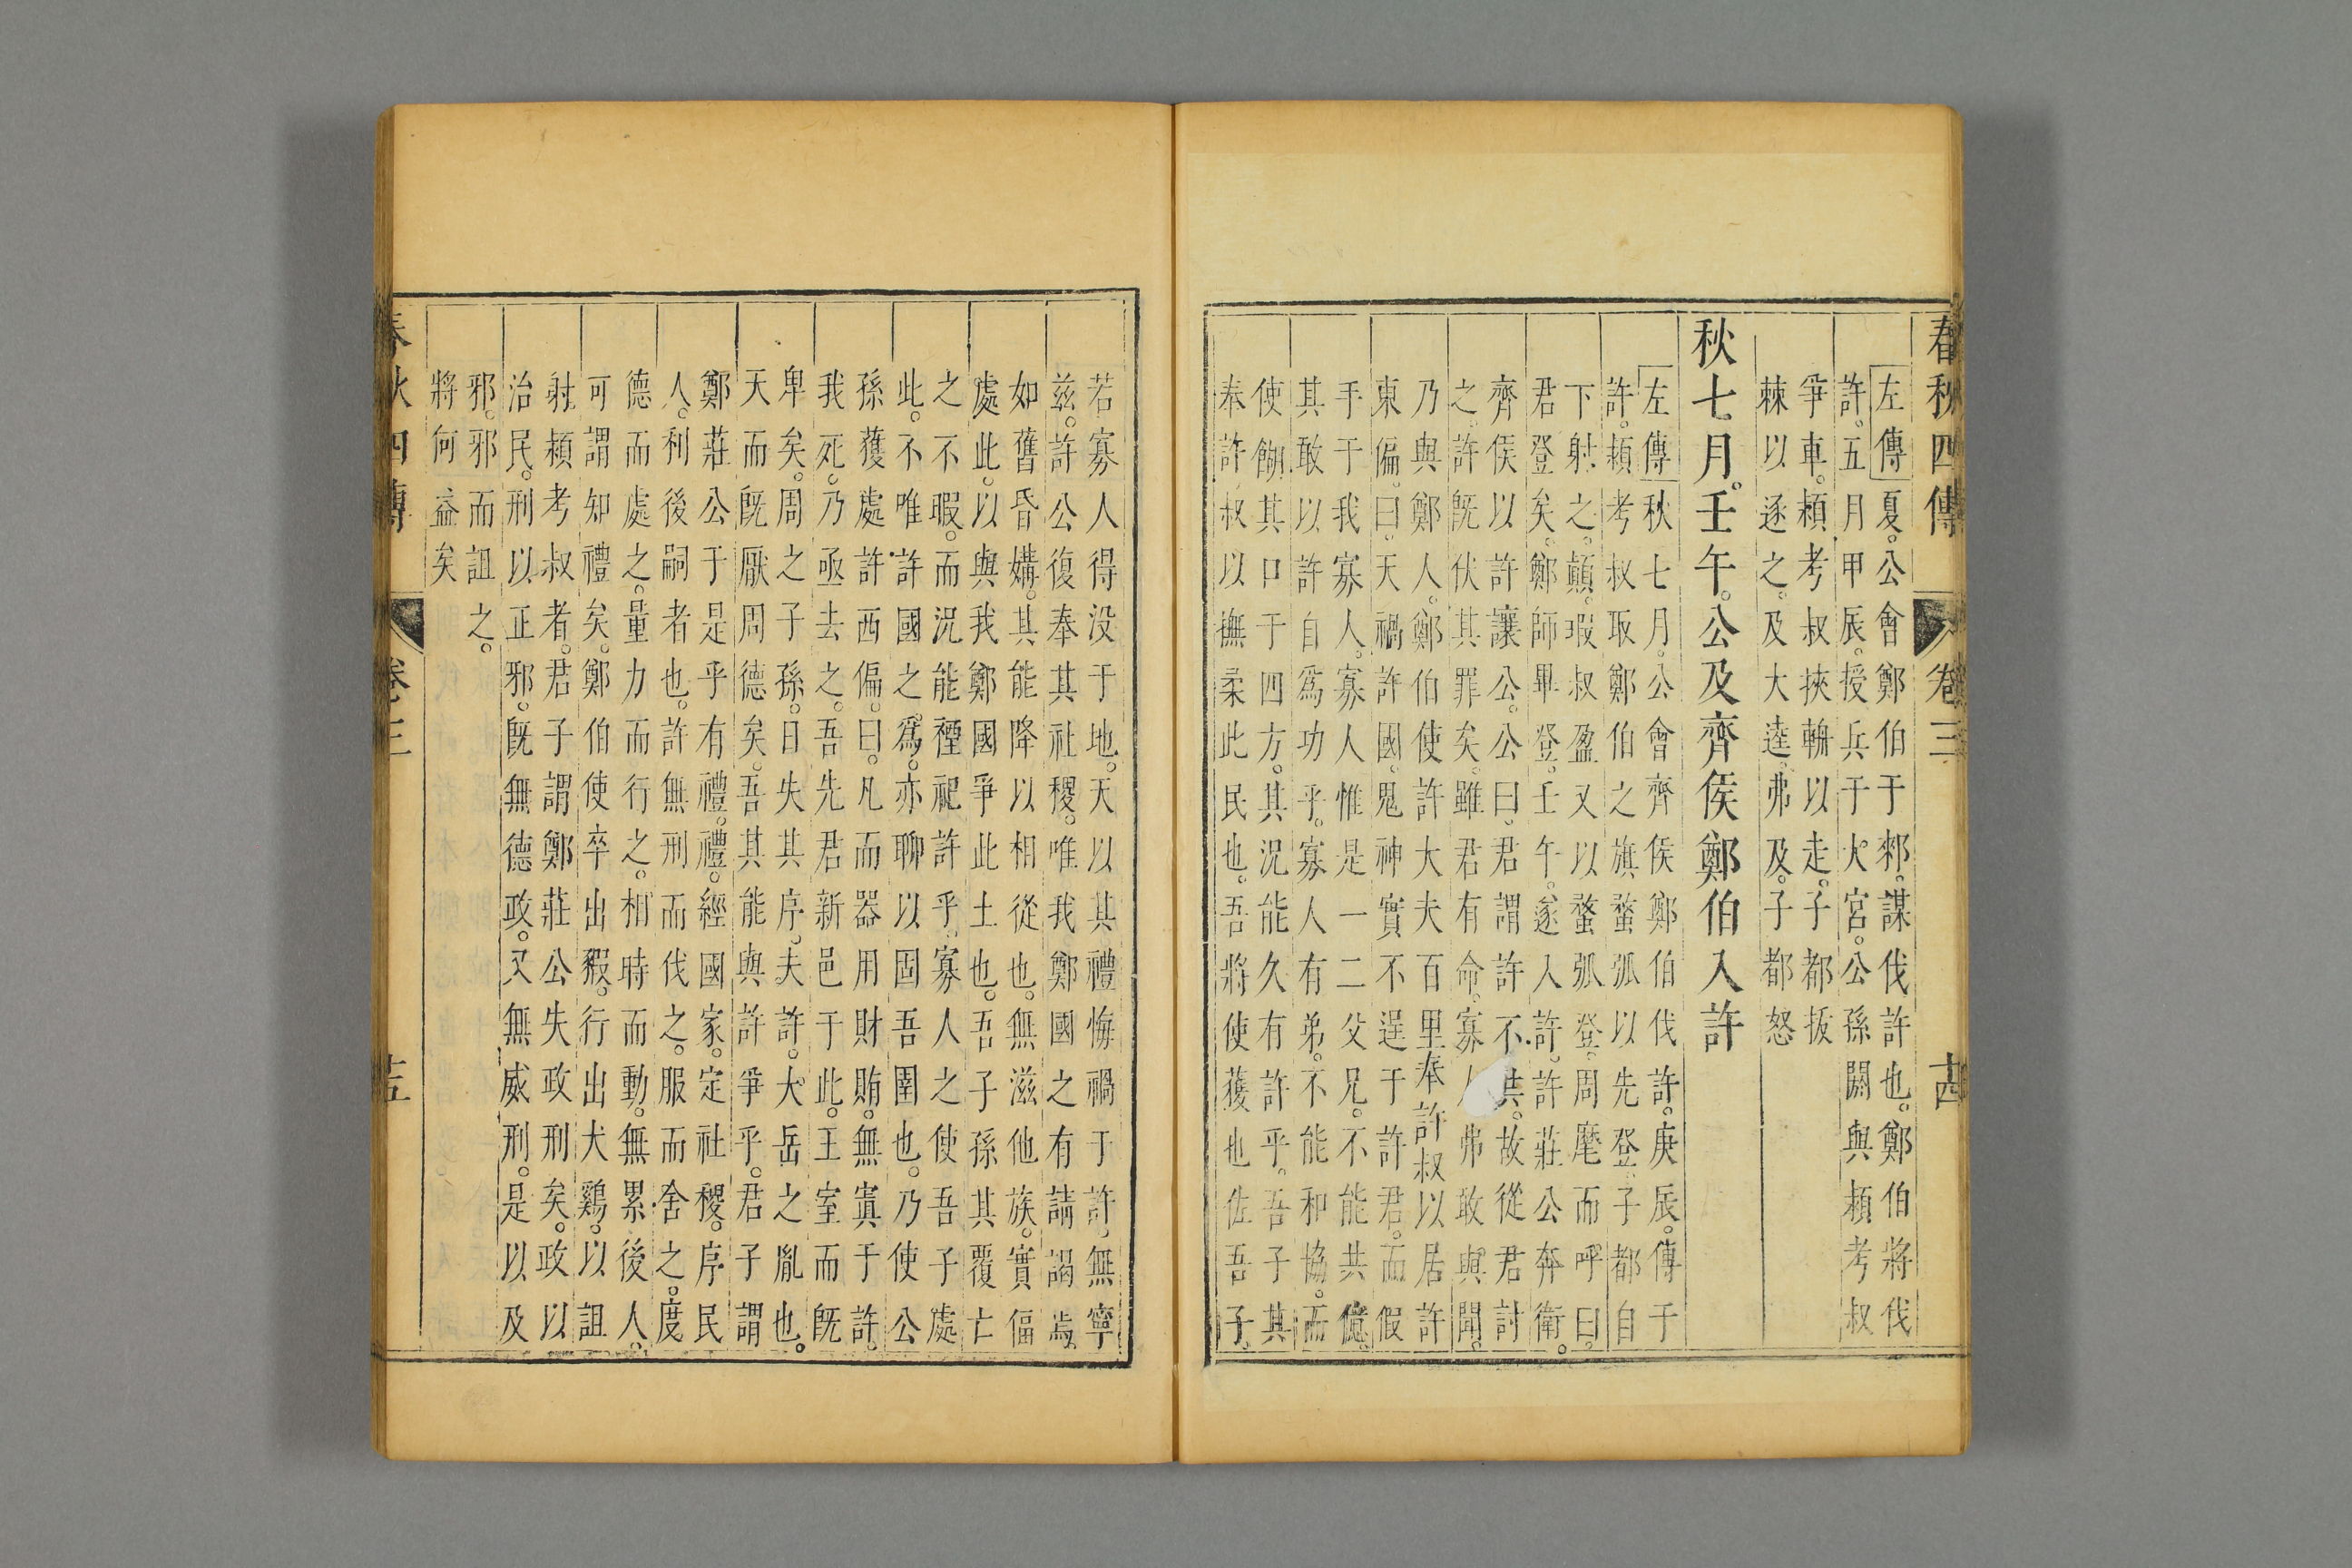 春秋四傳 卷三 十四
左傳夏。公會鄭伯于郲。謀伐許也。鄭伯將伐
許。五月甲辰。授兵于大宮。公孫閼與潁考叔
爭車。潁考叔挾輈以走。子都拔
棘以逐之。及大逵。弗及。子都怒
秋七月。壬午。公及齊侯鄭伯入許
左傳秋七月。公會齊侯鄭伯伐許。庚辰。傳于
許。潁考叔取鄭伯之旗蝥弧以先登。子都自
下射之。顛。瑕叔盈又以蝥弧登。周麾而呼曰。
君登矣。鄭師畢登。壬午。遂入許。許莊公奔衛。
齊侯以許讓公。公曰。君謂許不共。故從君討
之。許旣伏其罪矣。雖君有命。寡人弗敢與聞。
乃與鄭人。鄭伯使許大夫百里奉許叔以居許
東偏。曰。天禍許國。鬼神實不逞于許君。而假
手于我寡人。寡人惟是一二父兄。不能共億。
其敢以許自爲功乎。寡人有弟。不能和協。而
使餬其口于四方。其況能久有許乎。吾子其
奉許叔以撫柔此民也。吾將使獲也佐吾子。
若寡人得没于地。天以其禮悔禍于許。無寧
茲。許公復奉其社稷。唯我鄭國之有請謁焉。
如舊昏媾。其能降以相從也。無滋他族。實偪
處此。以與我鄭國爭此土也。吾子孫其覆亡
之不暇。而況能禋祀許乎。寡人之使吾子處
此。不唯許國之爲。亦聊以固吾圉也。乃使公
孫獲處許西偏。曰。凡而器用財賄。無寘于許。
我死。乃亟去之。吾先君新邑于此。王室而旣
卑矣。周之子孫。日失其序。夫許。大岳之胤也。
天而旣厭周德矣。吾其能與許爭乎。君子謂
鄭莊公于是乎有禮。禮。經國家。定社稷。序民
人。利後嗣者也。許無刑而伐之。服而舍之。度
德而處之。量力而行之。相時而動。無累後人。
可謂知禮矣。鄭伯使卒出豭。行出犬雞。以詛
射潁考叔者。君子謂鄭莊公失政刑矣。政以
治民。刑以正邪。旣無德政。又無威刑。是以及
邪。邪而詛之。
將何益矣
春秋四傳 卷三 十五